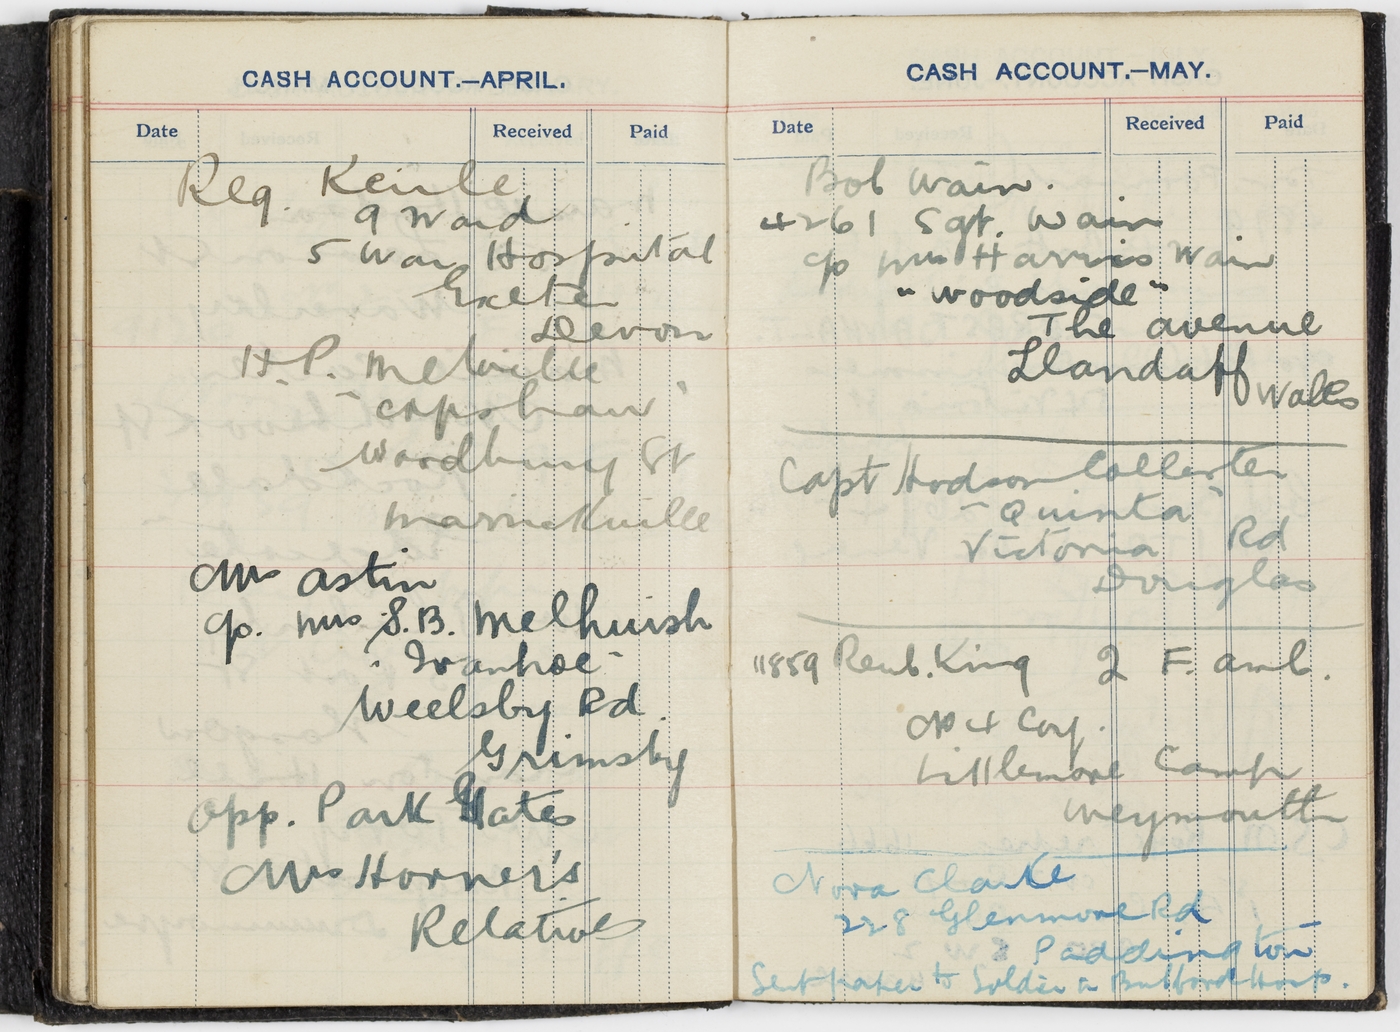 CASH ACCOUNT.—APRIL.
Date Received Paid
Reg. Keirle
9 Ward
5 War Hospital
Exeter
Devon
H.P. Melville
"Capshaw"
Woodbury St
Marrickville
Mrs Astin
c/o. Mrs S.B. Melhuish
"Ivanhoe"
Weelsby Rd.
Grimsby
Opp. Park Gates
Mrs Horner's
Relatives
CASH ACCOUNT.—MAY.
Date Received Paid
Bob Wain.
4261 Sgt. Wain
c/o Mrs Harris Wain
"Woodside"
The avenue
Llandaff
Wales
Capt Hodson Collester
"Quinta"
Victoria Rd
Douglas
11859 Reub. King 2 F. amb.
No 4 Coy.
Littlemore Camp
Weymouth
Nora Clarke
228 Glenmore Rd
Paddington
Sent paper to Soldier in Bulford Hosp.